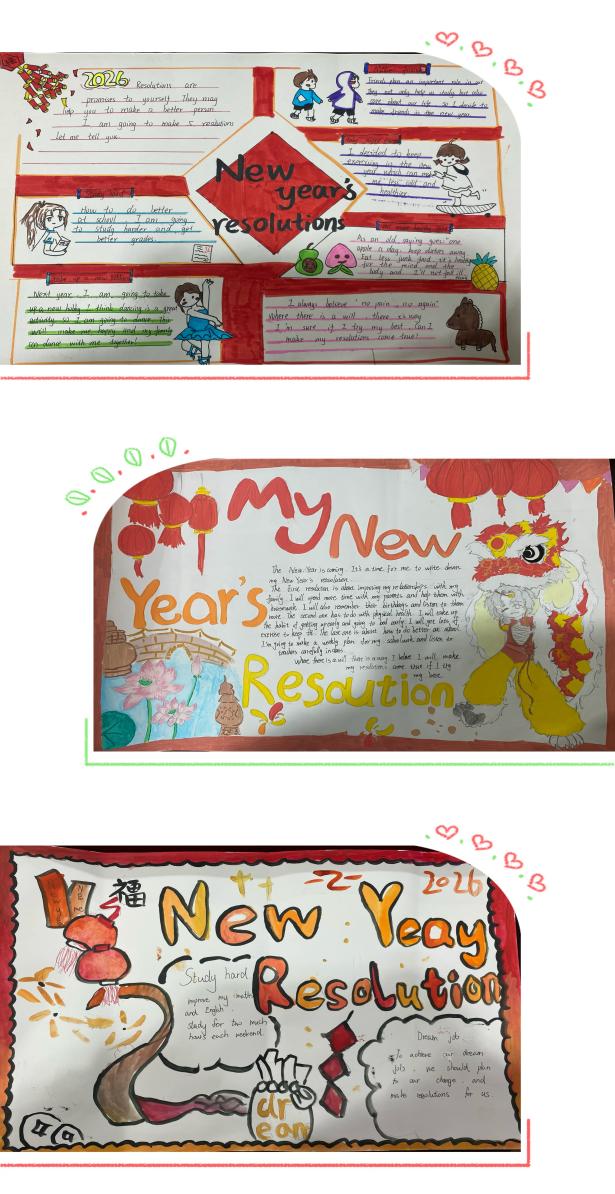 2026 Resolutions are
promises to yourself. They may
help you to make a better person.
I am going to make 5 resolutions
let me tell you.
New
year's
resolutions
I decided to keep
exercising in the new
year, which can make
me less cold and
healthier.
How to do better
at school. I am going
to study harder and get
better grades.
As an old saying goes: "one
apple a day, keep doctors away
Eat less junk food, it's
for the mind and the
body and I'll not fall ill.
Next year, I am going to take
up a new hobby. I think dancing is a great
activity, so I am going to dance. This
will make me happy and my family
can dance with me together!
I always believe "no pain, no again".
Where there is a will, there is way
I'm sure if I try my best, Can I
make my resolutions come true!
My New
The New Year is coming. It's a time for me to write down
my New Year's resolution.
Year's
The first resolution is about improving my relationships with my
family. I will spend more time with my parents and help them with
housework. I will also remember their birthdays and listen to them
more. The second one has to do with physical health. I will take up
the habit of getting up early and going to bed early. I will get lots of
exercise to keep fit. The last one is about how to do better at school.
I'm going to make a weekly plan for my schoolwork and listen to
teachers carefully in class.
Where there is a will there is a way. I believe I will make
my resolutions come true if I try
my best.
Resoution
福
New Yeay
2026
Resolution
Study hard
improve my math
and English.
study for two much
hours each weekend.
Dream job
To achieve our dream
job, we should plan
to our change and
make resolutions for us.
dr
eam